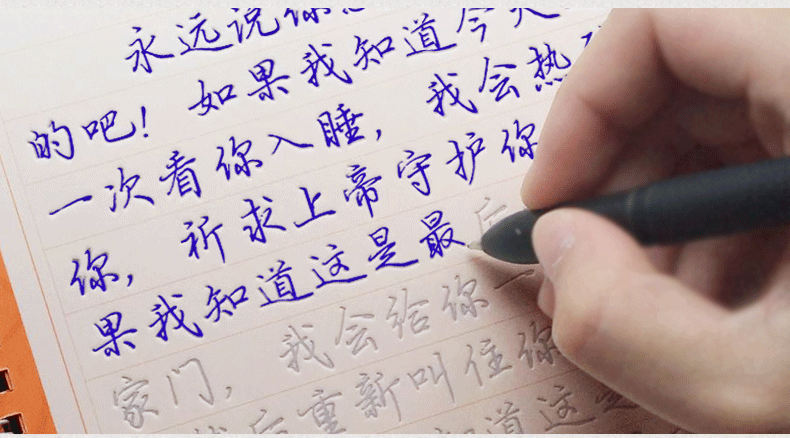 永远说你
的吧！如果我知道今天
一次看你入睡，我会热
你，祈求上帝守护你
果我知道这是最后
家门，我会给你一
然后重新叫住你
知道这是